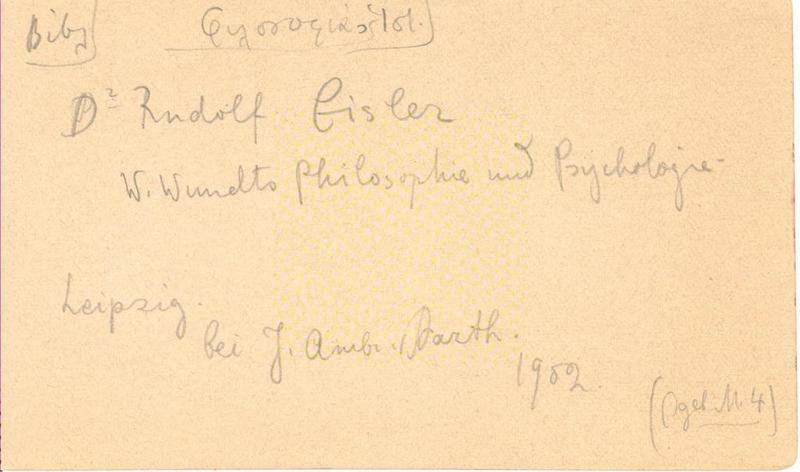 Bibl
Φιλοσοφίας Ἱστ.
Dr Rudolf Eisler
W. Wundts Philosophie und Psychologie
Leipzig.
bei J. Ambr. Barth.
1902.
geb. M. 4)